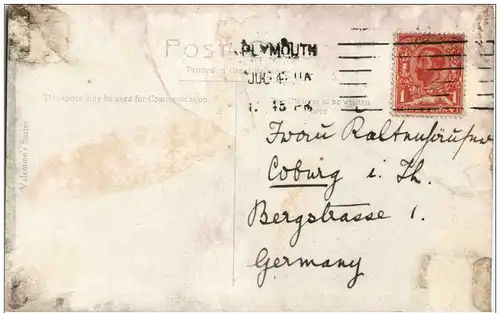 POST
PLYMOUTH
Printed in Great
JUL 4
15 PM
This space may be used for Communication
to be written
here
Valentine's Series
1
Frau Kaltenhäuser
Coburg i. Th.
Bergstrasse 1.
Germany